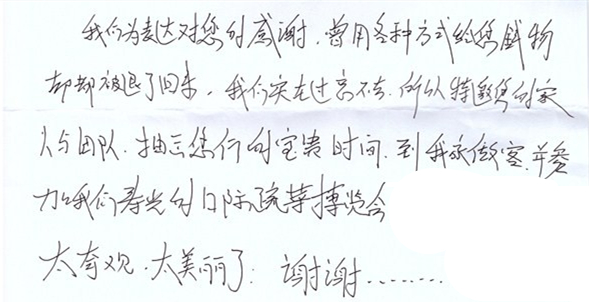 我们为表达对您的感谢，曾用各种方式给您钱物
却都被退了回来，我们实在过意不去，所以特邀您的家
人与团队，抽出您们的宝贵时间，到我家做客，并参
加我们寿光的国际蔬菜博览会
太奇观，太美丽了，谢谢........